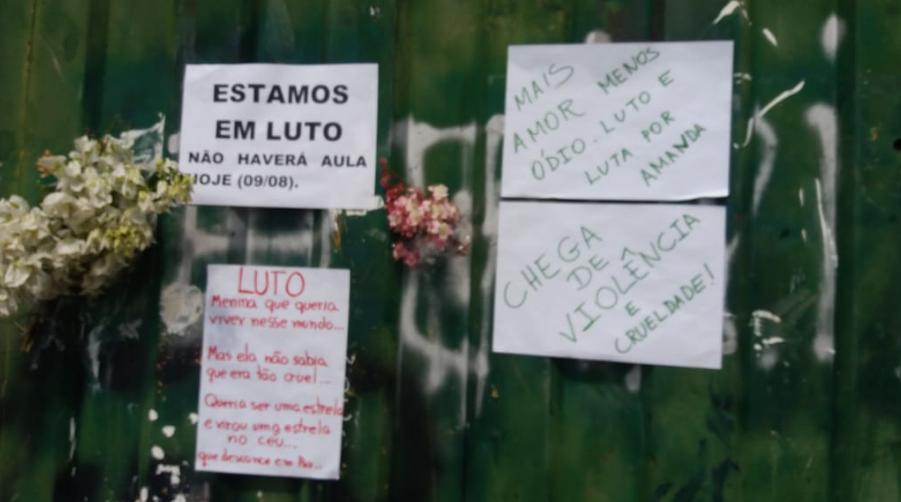 ESTAMOS
EM LUTO
NÃO HAVERÁ AULA
HOJE (09/08).
LUTO
Menina que queria
viver nesse mundo...
Mas ela não sabia
que era tão cruel...
Queria ser uma estrela
e virou uma estrela
no ceu...
que descance em Paz...
MAIS
AMOR MENOS
ÓDIO. LUTO E
LUTA POR
AMANDA
CHEGA
DE
VIOLÊNCIA
E
CRUELDADE!